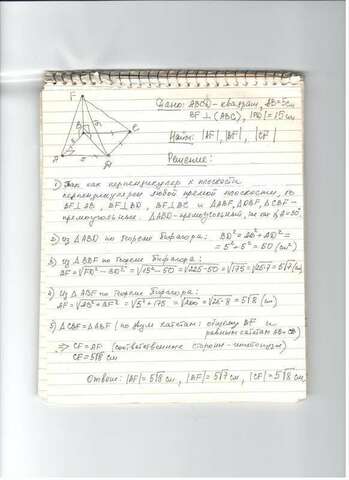 F
B
C
A
D
Дано: ABCD - квадрат, AB=5см
BF ⊥ (ABC), |FD|=15см
Найти: |AF|, |BF|, |CF|
Решение:
1) Так как перпендикуляр к плоскости
перпендикулярен любой прямой плоскости, то
BF⊥AB, BF⊥BD, BF⊥BC и ΔABF, ΔDBF, ΔCBF -
прямоугольные. ΔABD - прямоугольный,
2) Из ΔABD по теореме Пифагора: BD²=AB²+AD²=
=5²+5²=50 (см²)
3) Из ΔBDF по теореме Пифагора:
BF=√FD²-BD²=√15²-50=√225-50=√175=√25·7=5√7(см)
4) Из ΔABF по теореме Пифагора:
AF=√AB²+BF²=√5²+175=√200=√25·8=5√8(см)
5) ΔCBF=ΔABF (по двум катетам: общему BF и
равным катетам AB=CB)
⇒ CF=AF (соответственные стороны - гипотенузы)
CF=5√8 см
Ответ: |AF|=5√8 см, |BF|=5√7 см, |CF|=5√8 см.